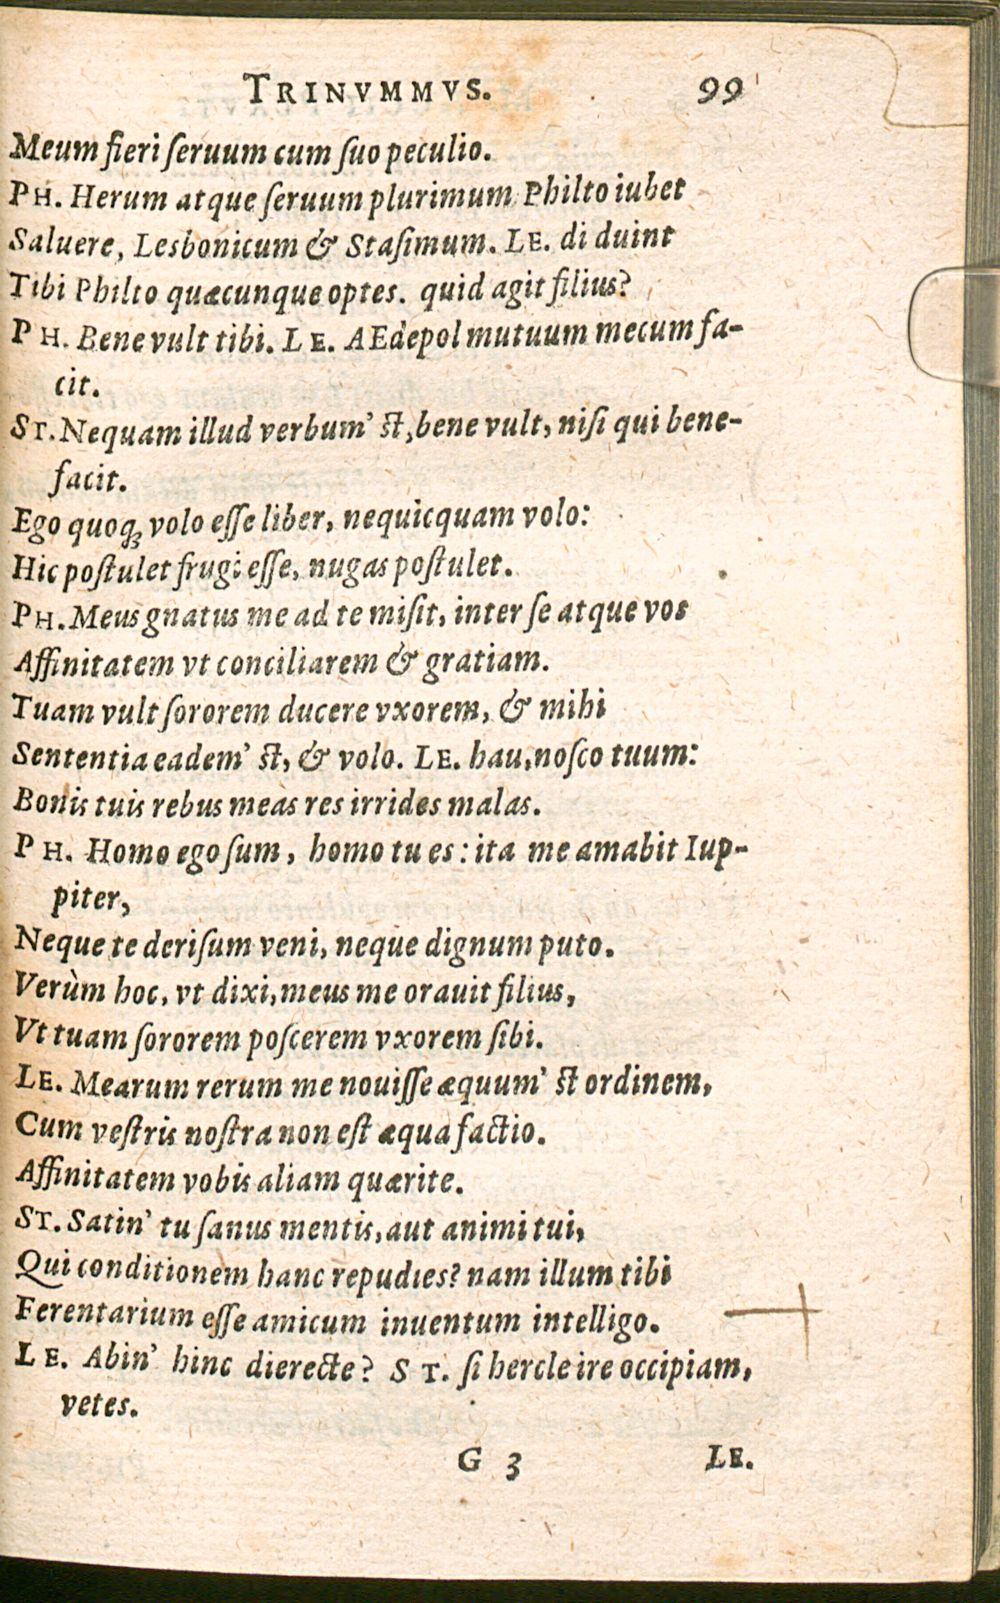 TRINVMMVS. 99
Meum fieri ſeruum cum ſuo peculio.
PH. Herum atque ſeruum plurimum Philto iubet
Saluere, Lesbonicum & Staſimum. LE. di duint
Tibi Philto quæcunque optes. quid agit filius?
PH. Bene vult tibi. LE. AEdepol mutuum mecum fa-
cit.
ST. Nequam illud verbum' ſt, bene vult, niſi qui bene-
facit.
Ego quoq; volo eſſe liber, nequicquam volo:
Hic poſtulet frugi eſſe, nugas poſtulet.
PH. Meus gnatus me ad te miſit, inter ſe atque vos
Affinitatem vt conciliarem & gratiam.
Tuam vult ſororem ducere vxorem, & mihi
Sententia eadem' ſt, & volo. LE. hau, noſco tuum:
Bonis tuis rebus meas res irrides malas.
PH. Homo ego ſum, homo tu es: ita me amabit Iup-
piter,
Neque te deriſum veni, neque dignum puto.
Verùm hoc, vt dixi, meus me orauit filius,
Vt tuam ſororem poſcerem vxorem ſibi.
LE. Mearum rerum me nouiſſe æquum' ſt ordinem,
Cum veſtris noſtra non eſt æqua factio.
Affinitatem vobis aliam quærite.
ST. Satin' tu ſanus mentis, aut animi tui,
Qui conditionem hanc repudies? nam illum tibi
Ferentarium eſſe amicum inuentum intelligo.
LE. Abin' hinc dierecte? ST. ſi hercle ire occipiam,
vetes.
G 3 LE.